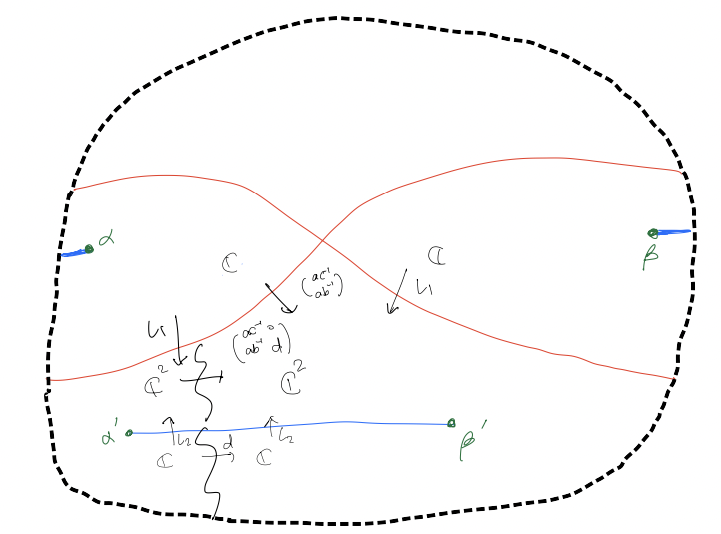 α
β
ℂ
ℂ
(ac⁻¹
ab⁻¹)
ι₁
ι₁
(ac⁻¹ 0
ab⁻¹ d)
ℂ²
ℂ²
α'
β'
ι₂
ι₂
ℂ
d
ℂ